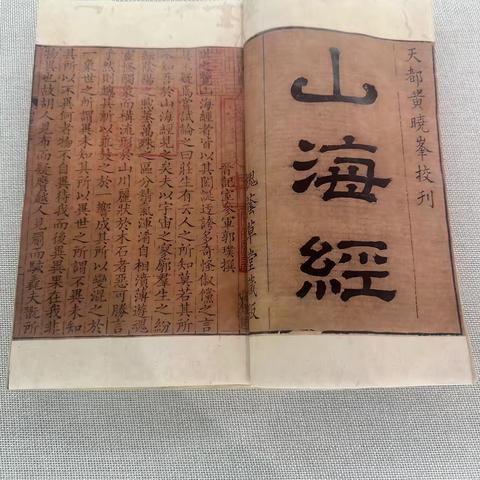 天都黄曉峯校刊
山海經
槐蔭草堂藏版
晉記室參軍郭璞撰
世之覽山海經者皆以其閎誕迂誇多奇怪俶儻之言
莫不疑焉嘗試論之曰莊生有云人之所知莫若其所
不知吾於山海經見之矣夫以宇宙之寥廓羣生之紛
紜陰陽之煦蒸萬殊之區分精氣渾淆自相濆薄遊魂
靈怪觸象而構流形於山川麗狀於木石者惡可勝言
乎然則總其所以乖鼓之於一響成其所以變混之於
一象世之所謂異未知其所以異世之所謂不異未知
其所以不異何者物不自異待我而後異異果在我非
物異也故胡人見布而疑黂越人見罽而駭毳夫翫所